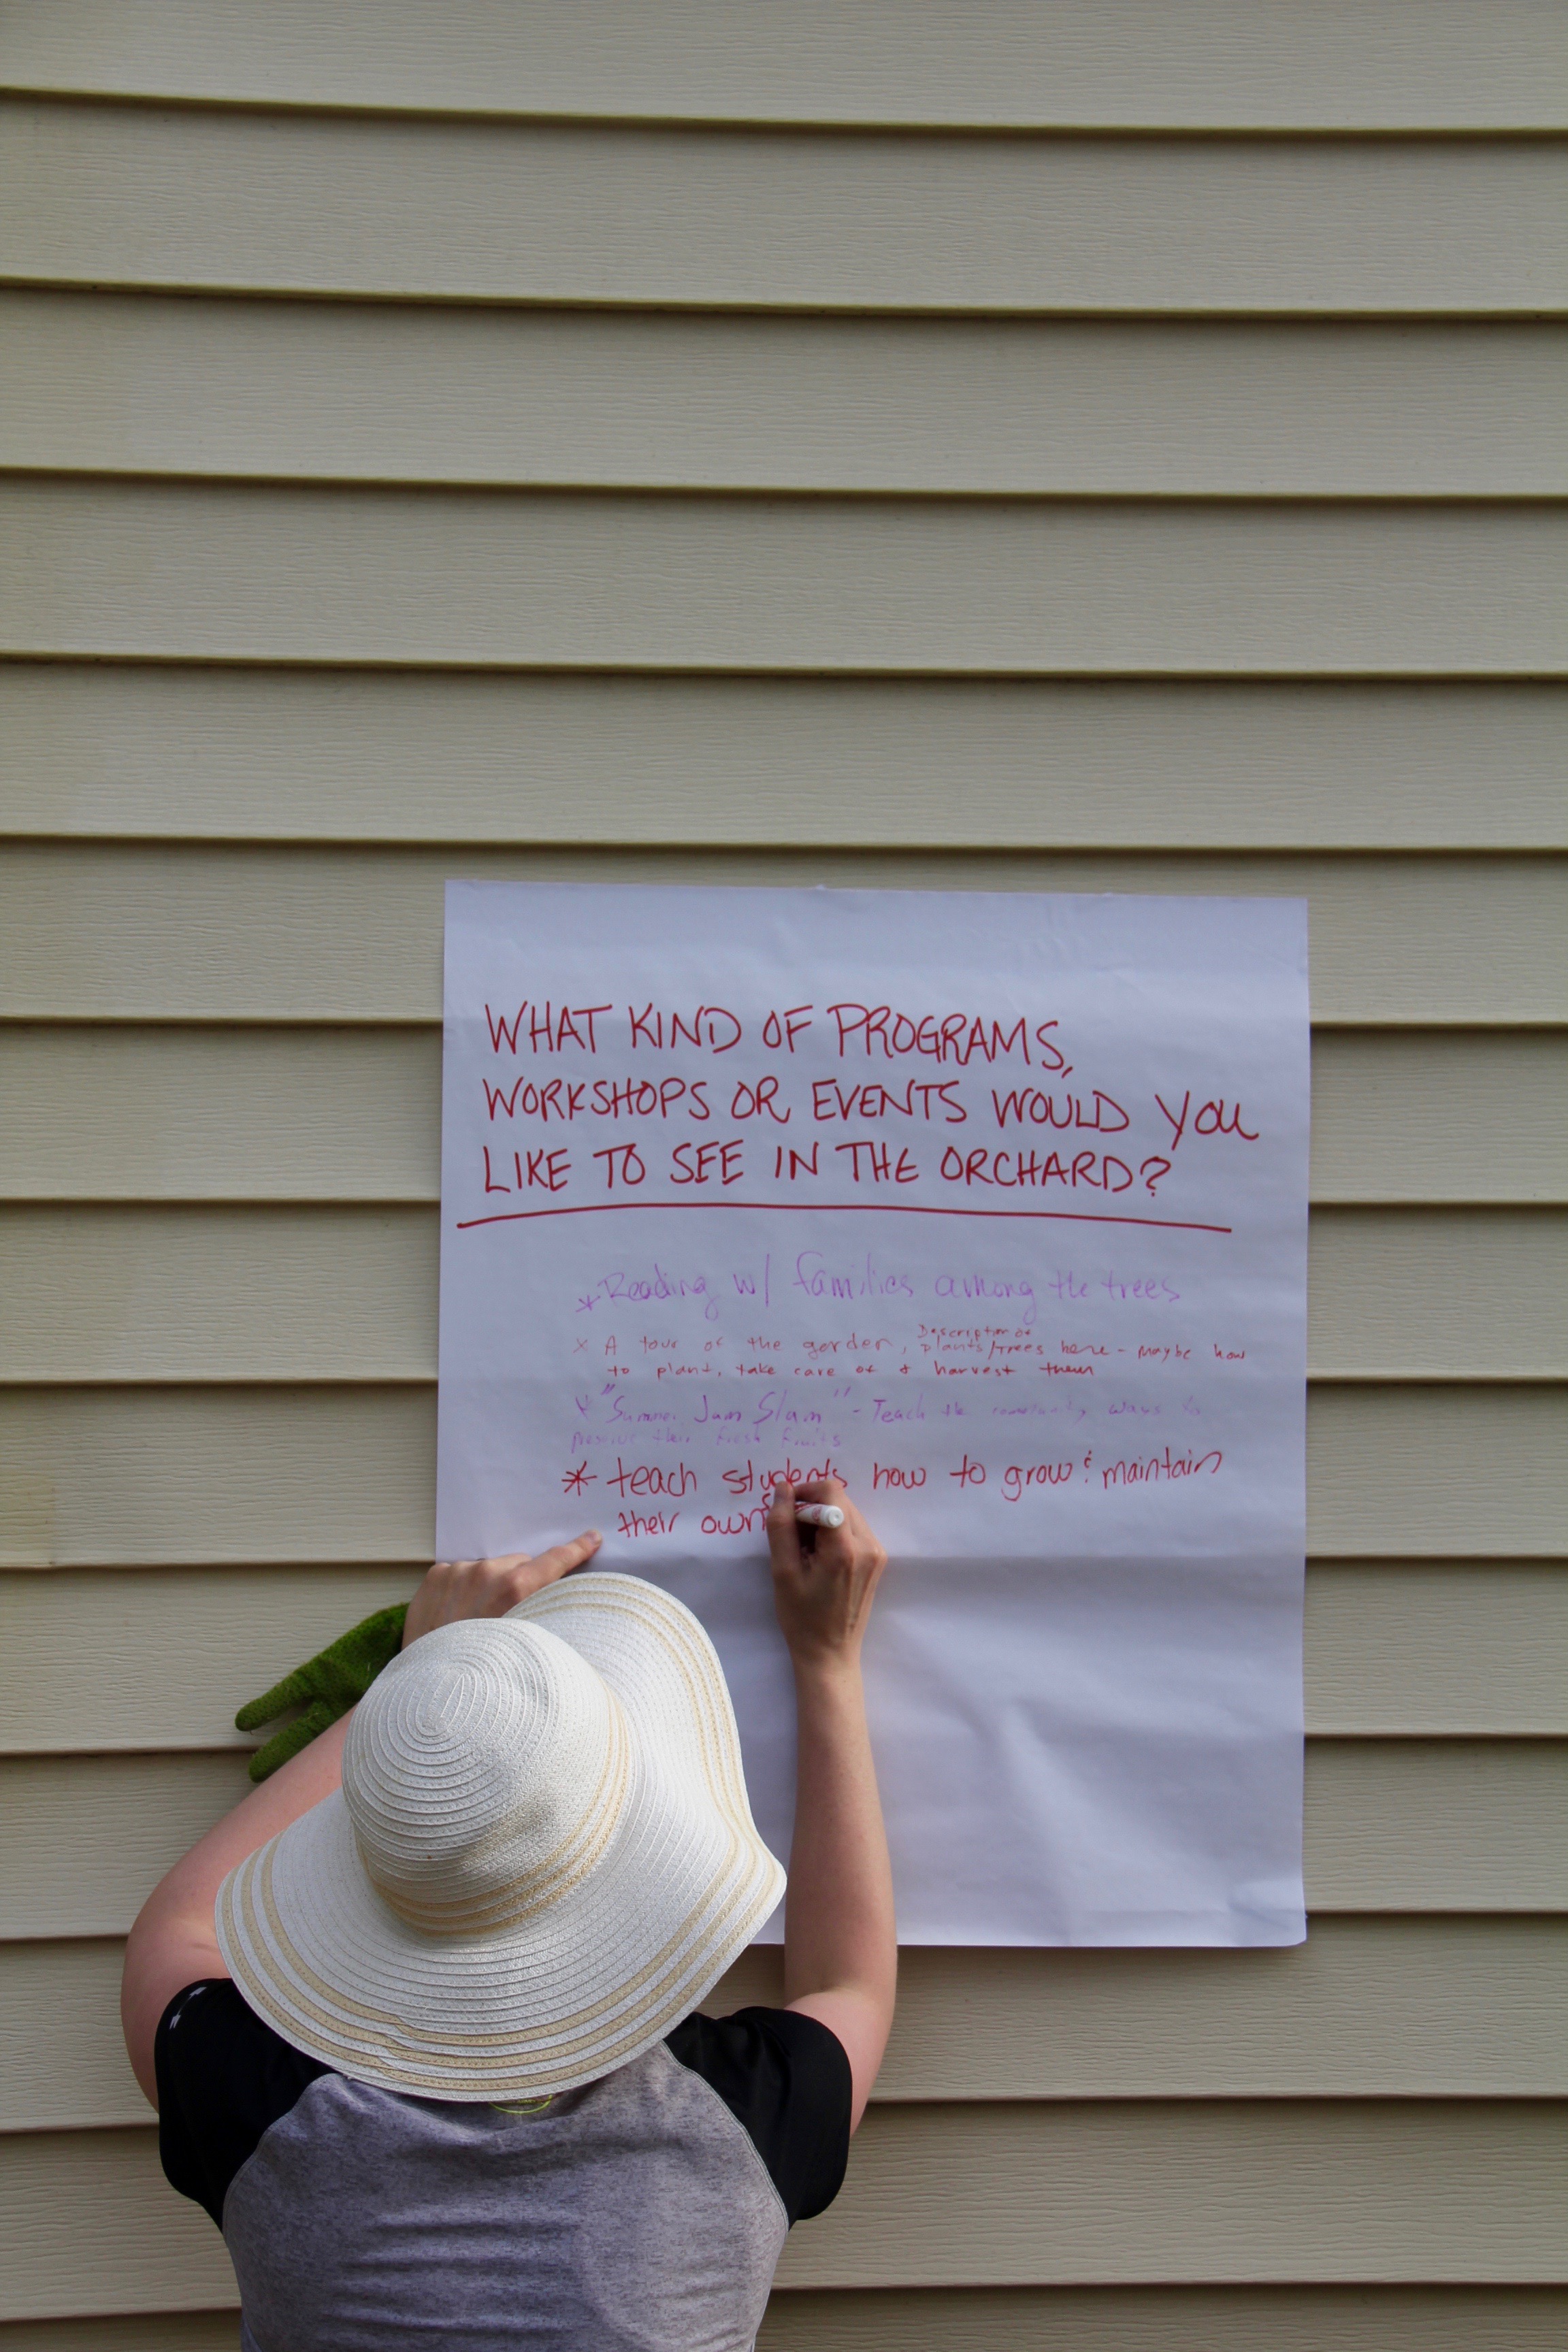 WHAT KIND OF PROGRAMS,
WORKSHOPS OR EVENTS WOULD YOU
LIKE TO SEE IN THE ORCHARD?
* Reading w/ families among the trees
x A tour of the garden, Description of plants/trees here - maybe how
to plant, take care of & harvest them
* "Summer Jam Slam" - Teach the community ways to
preserve their fresh fruits
* teach students how to grow & maintain
their own